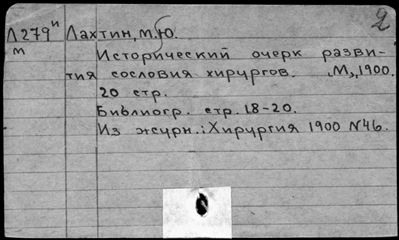 2
Л279и Лахтин, М.Ю.
м
Исторический очерк разви-
тия сословия хирургов. М., 1900.
20 стр.
Библиогр. стр. 18-20.
Из журн.: Хирургия 1900 №46.